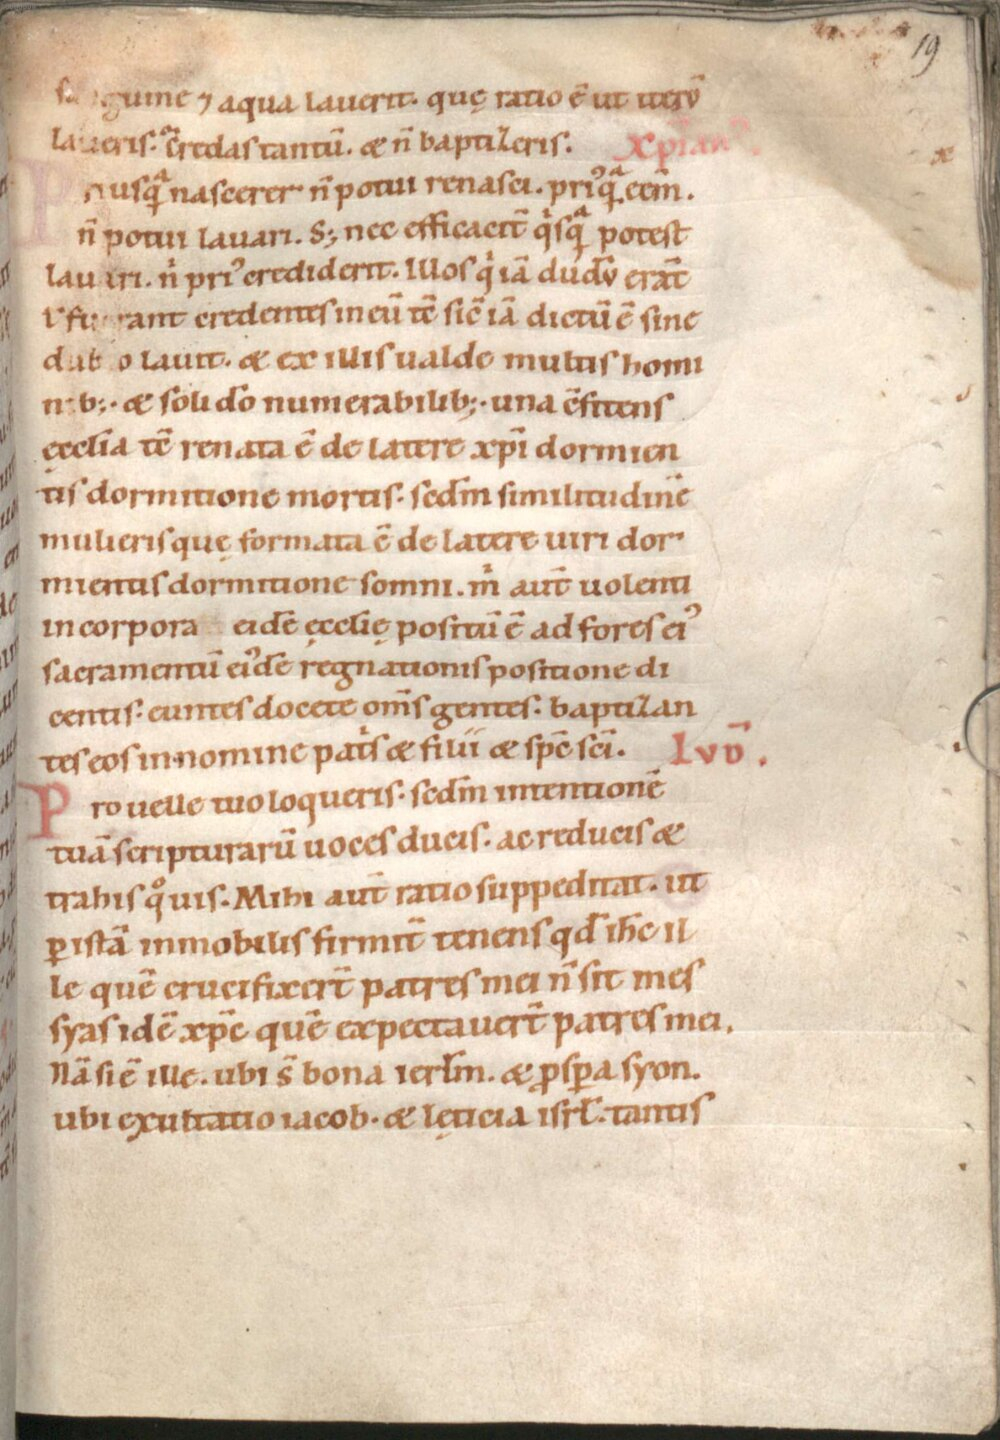 19
sanguine ⁊ aqua lauerit. quę ratio ē ut iterū
laueris. credas tantū. & ñ baptizeris. xp̄ian᷒.
Priusqͣ̄ nascerer ñ potui renasci. pri᷒qͣ̄ eēm.
ñ potui lauari. S; nec efficacit̄ qͥsqͣ̄ potest
lauari. nͥ pri᷒ crediderit. Illos qͥ iā dudū erāt
ł fuerant credentes in eū tē sic̄ iā dictū ē sine
dubio lauit. & ex illis ualde multis homi
nib;. & soli dō numerabilib;. una cf̄itens
ęcclīa tē renata ē de latere xp̄i dormien
tis dormitione mortis. sed̄m similitudinē
mulieris quę formata ē de latere uiri dor
mientis dormitione somni. mͥ aut̄ uolenti
incorpora eidē ęcclię positū ē ad fores ei᷒
sacramentū ei᷒dē regnationis positione di
centis. euntes docete om̄s gentes. baptizan
tes eos in nomine patͥs & filii & sp̄c sc̄i. Ivd̄.
Pro uelle tuo loqueris. sed̄m intentionē
tuā scripturarū uoces ducis. ac reducis &
trahis qͦuis. Mihi aut̄ ratio suppeditat. ut
ꝑ istā inmobilis firmit̄ tenens qd̄ ih̄c il
le quē crucifixert̄ patres mei ñ sit mes
syas idē xp̄c quē expectauert̄ patres mei.
Nā si ē ille. ubi s̄ bona ierłm. & ꝓsꝑa syon.
ubi exultatio iacob. & lęticia isrł. tantis